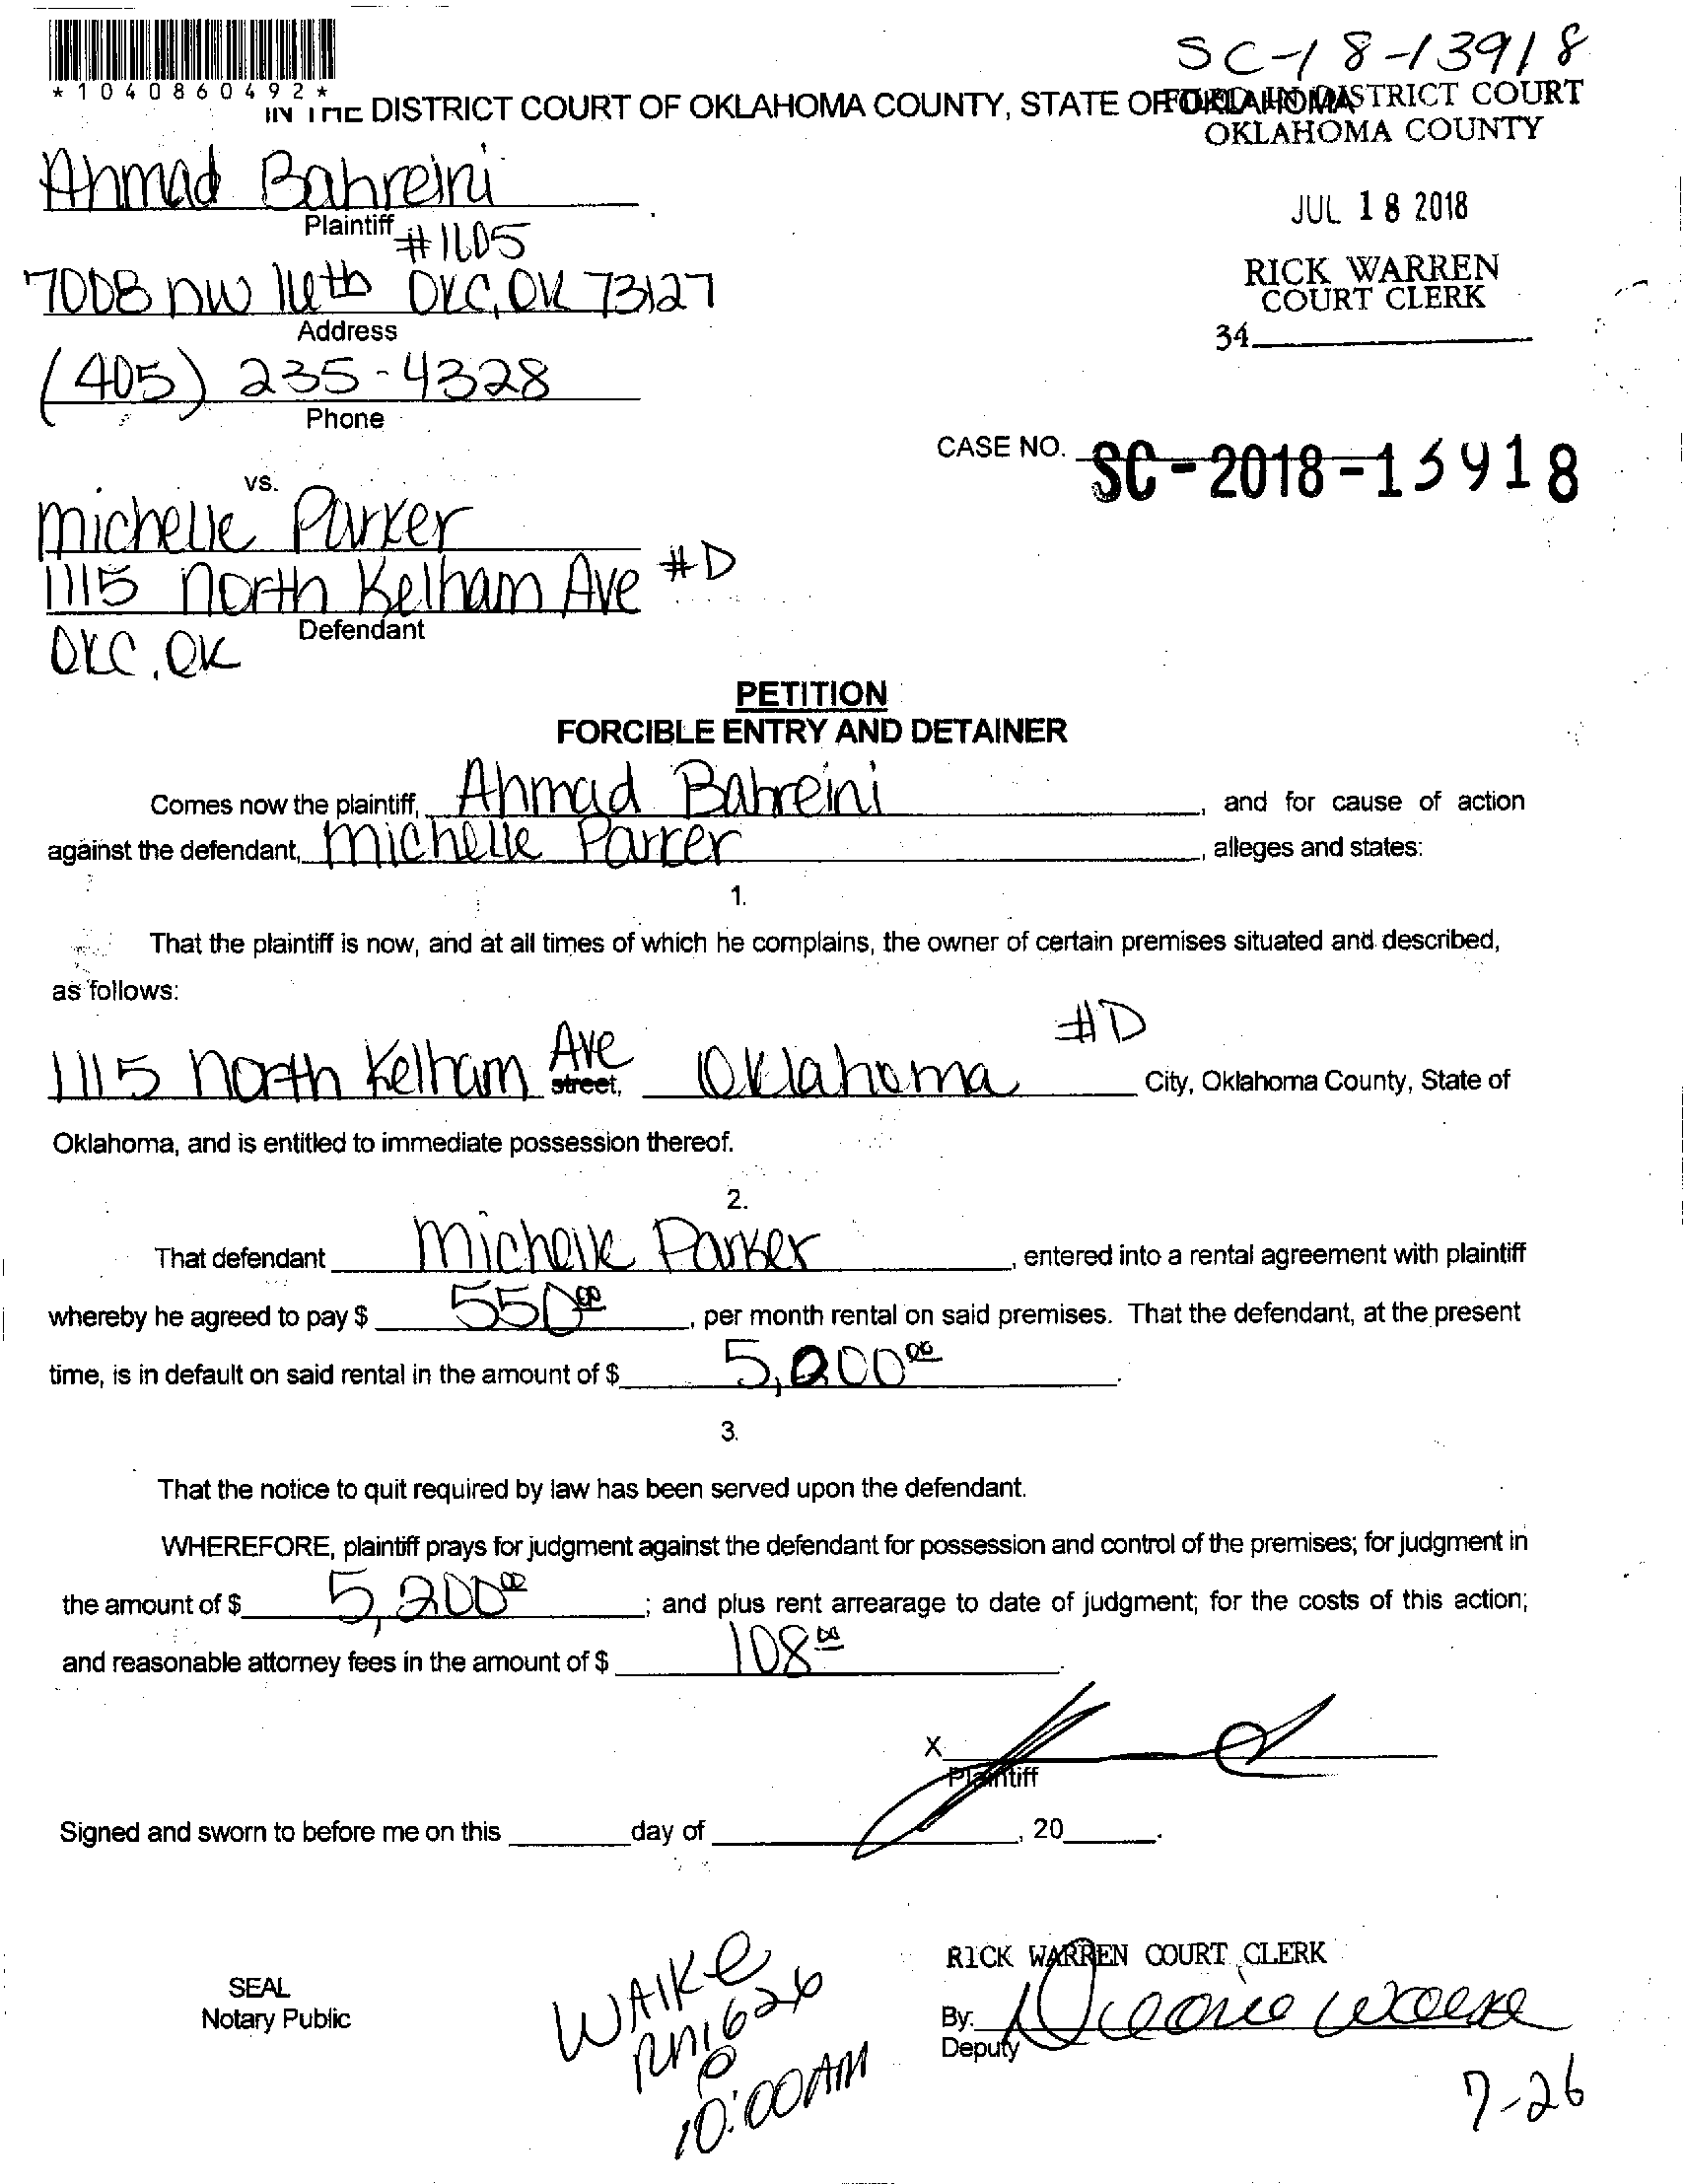 SC-18-13918
*1040860492*
IN THE DISTRICT COURT OF OKLAHOMA COUNTY, STATE OF OKLAHOMA
FILED IN DISTRICT COURT
OKLAHOMA COUNTY
JUL 18 2018
RICK WARREN
COURT CLERK
34
Ahmad Bahreini
Plaintiff
#1605
7008 NW 16th OKC, OK 73127
Address
(405) 235-4328
Phone
CASE NO. SC-2018-13918
vs.
Michelle Parker
1115 North Kelham Ave #D
Defendant
OKC, OK
PETITION
FORCIBLE ENTRY AND DETAINER
Comes now the plaintiff, Ahmad Bahreini, and for cause of action
against the defendant, Michelle Parker, alleges and states:
1.
That the plaintiff is now, and at all times of which he complains, the owner of certain premises situated and described,
as follows:
#D
1115 North Kelham Ave street, Oklahoma City, Oklahoma County, State of
Oklahoma, and is entitled to immediate possession thereof.
2.
That defendant Michelle Parker, entered into a rental agreement with plaintiff
whereby he agreed to pay $ 550.00, per month rental on said premises. That the defendant, at the present
time, is in default on said rental in the amount of $ 5,200.00.
3.
That the notice to quit required by law has been served upon the defendant.
WHEREFORE, plaintiff prays for judgment against the defendant for possession and control of the premises; for judgment in
the amount of $ 5,200.00; and plus rent arrearage to date of judgment; for the costs of this action;
and reasonable attorney fees in the amount of $ 108.00.
X
Plaintiff
Signed and sworn to before me on this ____ day of ____, 20____.
SEAL
Notary Public
WAIKE
RM 626
@
10:00 AM
RICK WARREN COURT CLERK
By:
Deputy
7-26